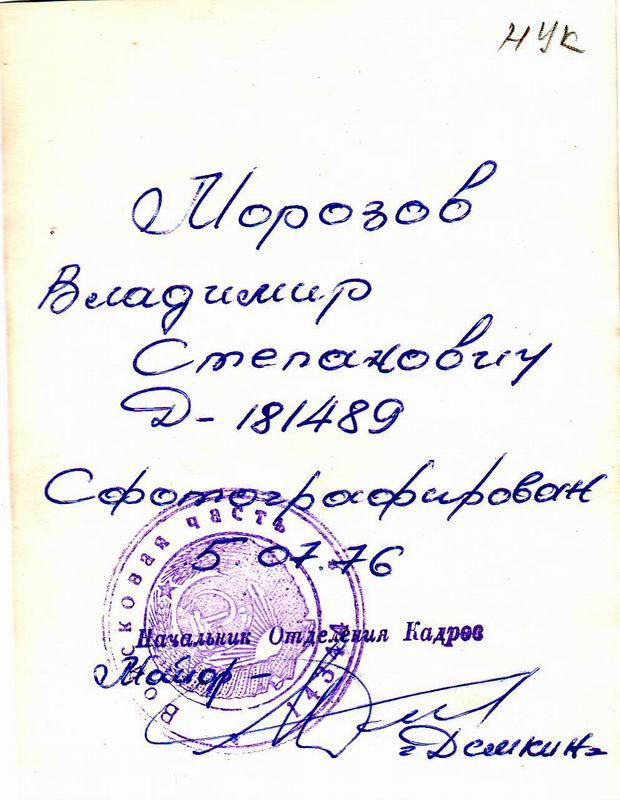 НУК
Морозов
Владимир
Степанович
Д-181489
Сфотографирован
5.07.76
Войсковая часть
Начальник Отделения Кадров
Майор -
=Демкин=